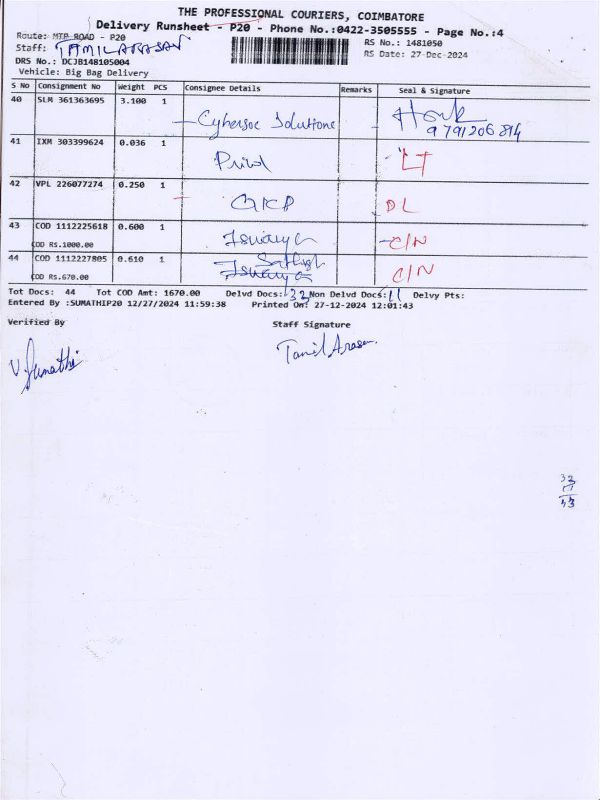 THE PROFESSIONAL COURIERS, COIMBATORE
Delivery Runsheet - P20 - Phone No.:0422-3505555 - Page No.:4
Route: MTP ROAD - P20
Staff: TAMILARASAN
RS No.: 1481050
DRS No.: DCJB148105004
RS Date: 27-Dec-2024
Vehicle: Big Bag Delivery
S No Consignment No Weight PCS Consignee Details Remarks Seal & Signature
40 SLM 361363695 3.100 1 Cybersoc Solutions
9791206894
41 IXM 303399624 0.036 1 LT
42 VPL 226077274 0.250 1 DL
43 COD 1112225618 0.600 1 Iswarya C/N
OD RS.1000.00
44 COD 1112227805 0.610 1 Sathish C/N
Iswarya
OD RS.670.00
Tot Docs: 44 Tot COD Amt: 1670.00 Delvd Docs: 32 Non Delvd Docs: 11 Delvy Pts:
Entered By :SUMATHIP20 12/27/2024 11:59:38 Printed On: 27-12-2024 12:01:43
Verified By Staff Signature
V. Sumathi Tamil Arasan.